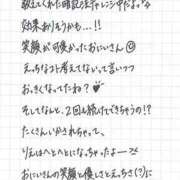 教えてくれた暗記法チャレンジ中だよ。
効果ありそうかも…!!
笑顔が可愛かったおにいさん☺
えっちなコト考えてないって言いつつ
おっきくなってたね?♥
そしてなんと、2回も続けてできちゃうの!?
たくさんいかされちゃって、
りえはへとへとになっちゃったよーァァ
おにいさんの笑顔と優しさとえっちさ(?)に